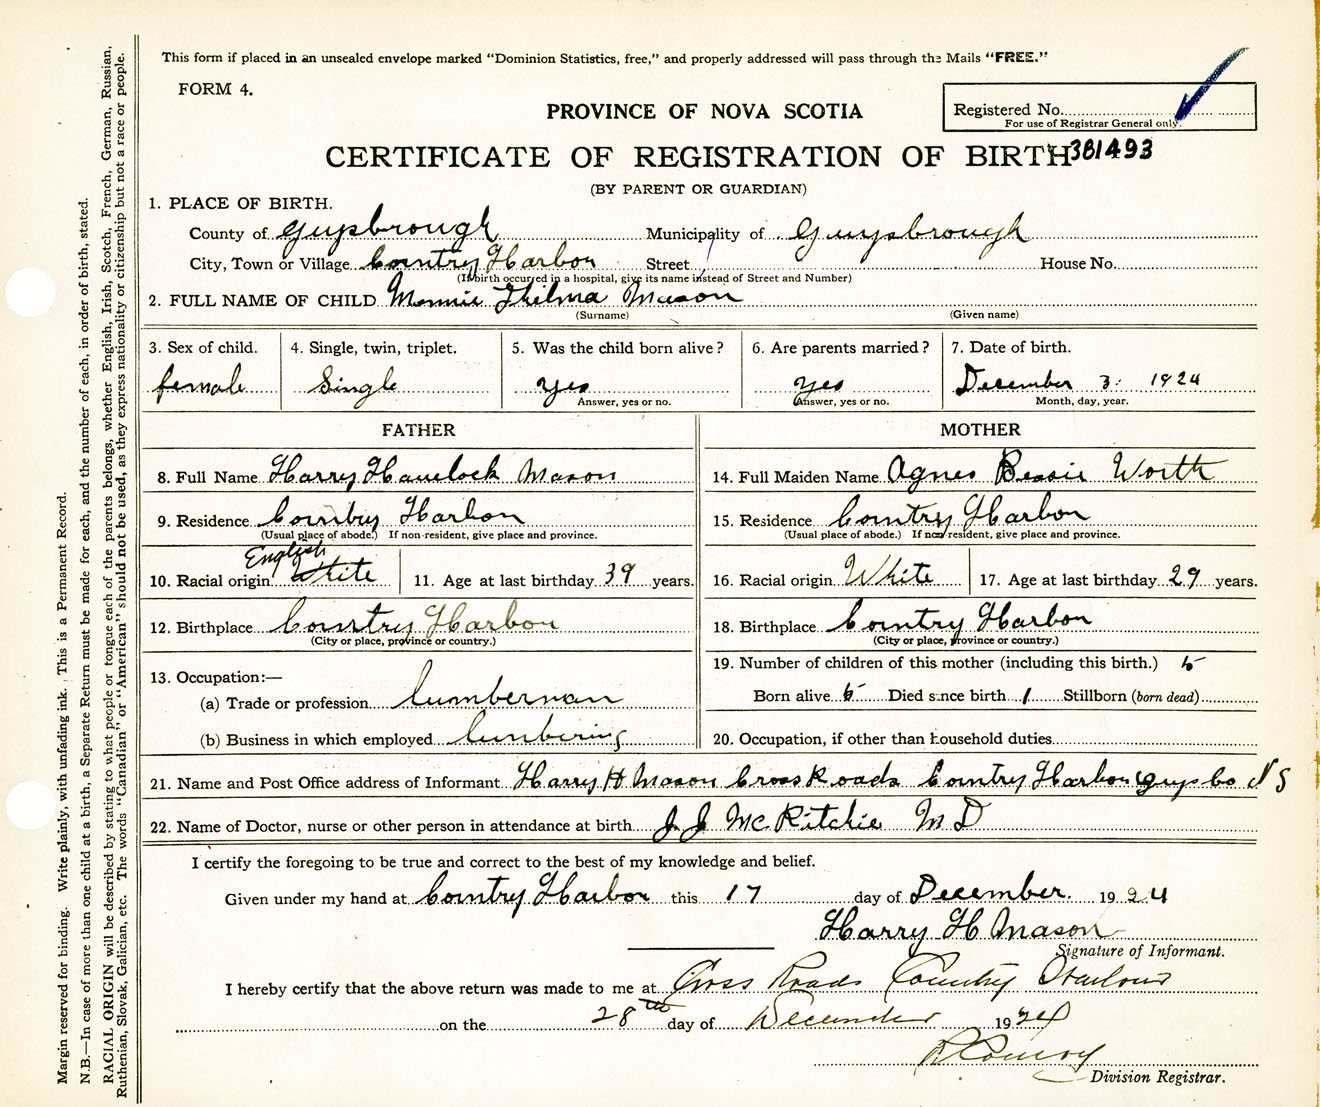 This form if placed in an unsealed envelope marked "Dominion Statistics, free," and properly addressed will pass through the Mails "FREE."
FORM 4.
PROVINCE OF NOVA SCOTIA
Registered No.
For use of Registrar General only.
CERTIFICATE OF REGISTRATION OF BIRTH 381493
(BY PARENT OR GUARDIAN)
1. PLACE OF BIRTH.
County of Guysbrough Municipality of Guysbrough
City, Town or Village Country Harbor Street House No.
(If birth occurred in a hospital, give its name instead of Street and Number)
2. FULL NAME OF CHILD Minnie Thelma Mason
(Surname) (Given name)
3. Sex of child. 4. Single, twin, triplet. 5. Was the child born alive? 6. Are parents married? 7. Date of birth.
female Single yes yes December 3. 1924
Answer, yes or no. Answer, yes or no. Month, day, year.
FATHER MOTHER
8. Full Name Harry Havelock Mason 14. Full Maiden Name Agnes Bessie Worth
9. Residence Country Harbor 15. Residence Country Harbor
(Usual place of abode.) If non-resident, give place and province. (Usual place of abode.) If non-resident, give place and province.
English
10. Racial origin White 11. Age at last birthday 39 years. 16. Racial origin White 17. Age at last birthday 29 years.
12. Birthplace Country Harbor 18. Birthplace Country Harbor
(City or place, province or country.) (City or place, province or country.)
13. Occupation:— 19. Number of children of this mother (including this birth.) 5
(a) Trade or profession lumberman Born alive 5 Died since birth 1 Stillborn (born dead)
(b) Business in which employed lumbering 20. Occupation, if other than household duties
21. Name and Post Office address of Informant Harry H Mason Cross Roads Country Harbor Guys Co N S
22. Name of Doctor, nurse or other person in attendance at birth J J McRitchie M D
I certify the foregoing to be true and correct to the best of my knowledge and belief.
Given under my hand at Country Harbor this 17 day of December. 1924
Harry H Mason
Signature of Informant.
I hereby certify that the above return was made to me at Cross Roads Country Harbour
on the 28th day of December 1924
Conroy
Division Registrar.
Margin reserved for binding. Write plainly, with unfading ink. This is a Permanent Record.
N.B.—In case of more than one child at a birth, a Separate Return must be made for each, and the number of each, in order of birth, stated.
RACIAL ORIGIN will be described by stating to what people or tongue each of the parents belongs, whether English, Irish, Scotch, French, German, Russian,
Ruthenian, Slovak, Galician, etc. The words "Canadian" or "American" should not be used, as they express nationality or citizenship but not a race or people.